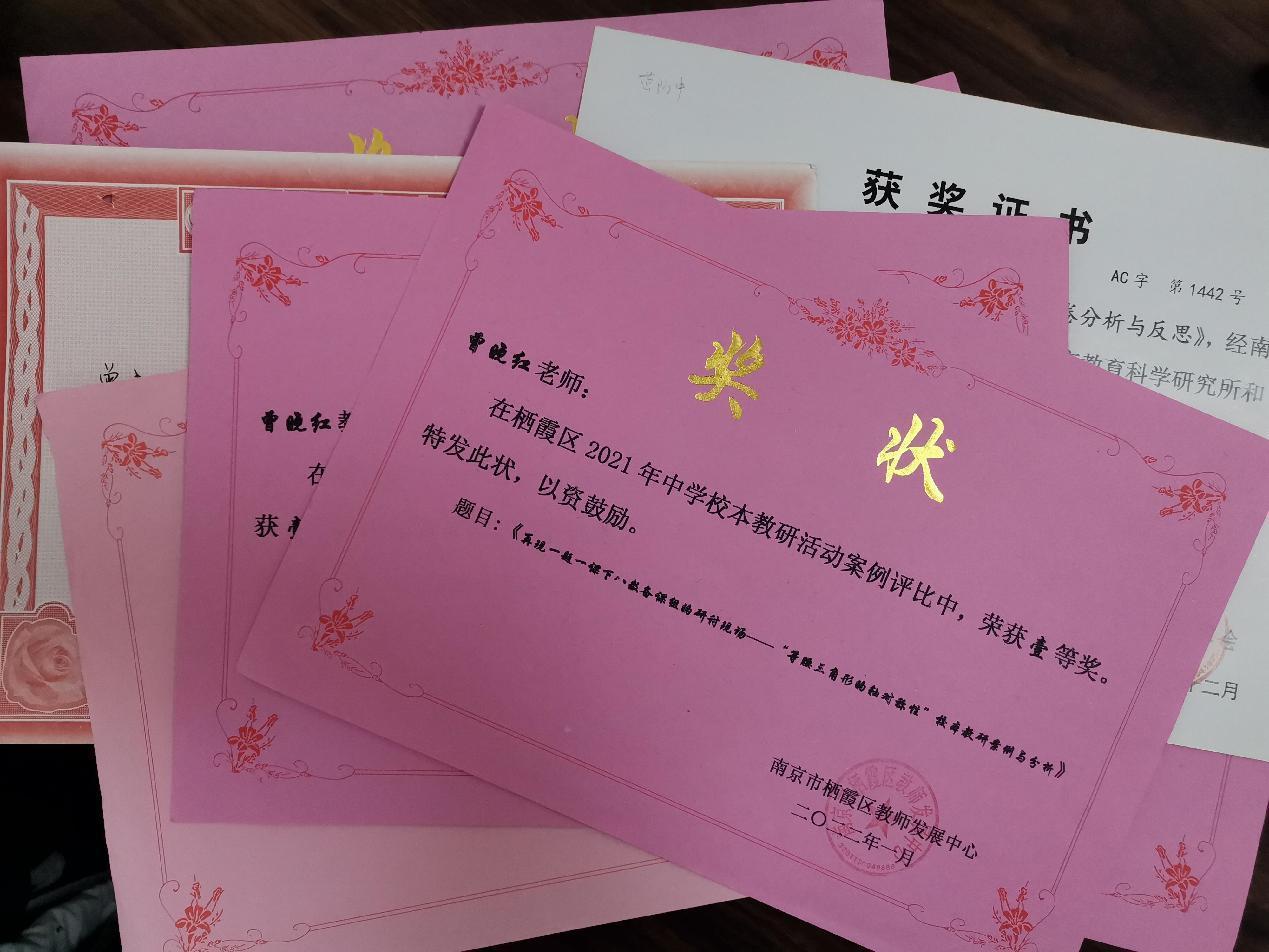 获奖证书
AC字 第1442号
分析与反思》，经南
教育科学研究所和
会
十二月
曾晓红
在
获
奖状
曾晓红老师：
在栖霞区2021年中学校本教研活动案例评比中，荣获壹等奖。
特发此状，以资鼓励。
题目：《再现一题一课下八数备课组的研讨现场——“等腰三角形的轴对称性”校本教研案例与分析》
南京市栖霞区教师发展中心
二〇二二年一月